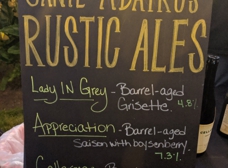 SANTE ADAIRUS
RUSTIC ALES
Lady IN Grey - Barrel-aged
Grisette. 4.8%
Appreciation - Barrel-aged
Saison with boysenberry
7.3%